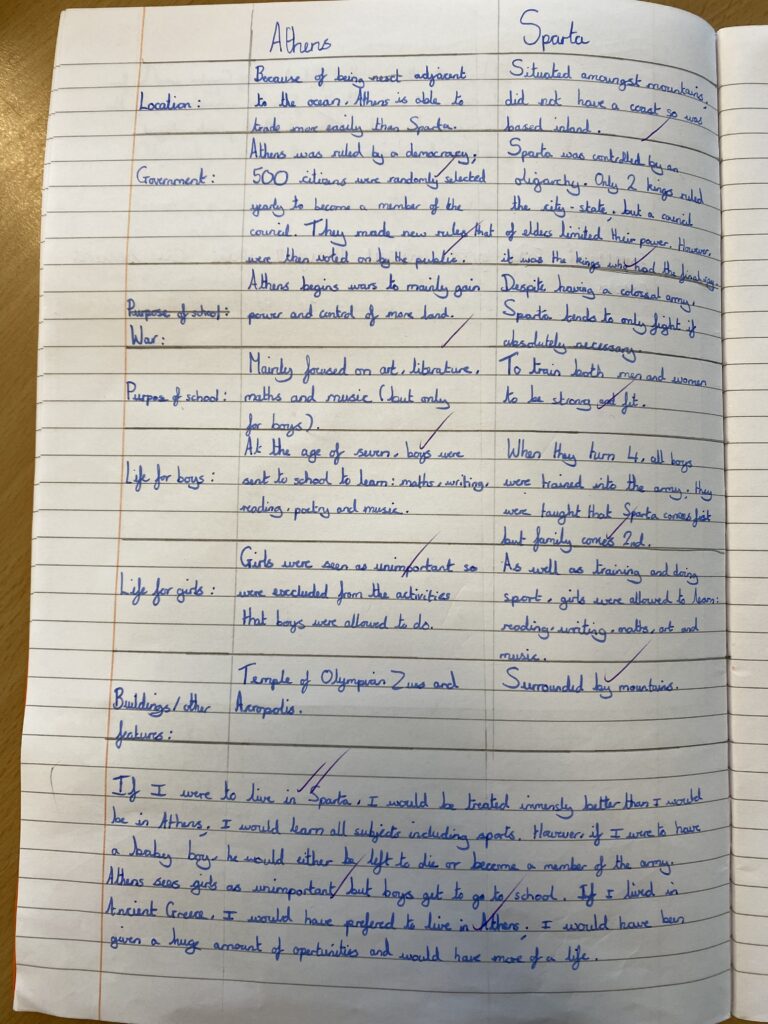 Athens Sparta
Location :
Because of being next adjacent
to the ocean, Athens is able to
trade more easily than Sparta.
Situated amongst mountains,
did not have a coast so was
based inland.
Government :
Athens was ruled by a democracy;
500 citizens were randomly selected
yearly to become a member of the
council. They made new rules that
were then voted on by the public.
Sparta was controlled by an
oligarchy. Only 2 kings ruled
the city-state, but a council
of elders limited their power. However,
it was the kings who had the final say.
Purpose of school:
War:
Athens begins wars to mainly gain
power and control of more land.
Despite having a colossal army,
Sparta tends to only fight if
absolutely necessary.
Purpose of school:
Mainly focused on art, literature,
maths and music (but only
for boys).
To train both men and women
to be strong and fit.
Life for boys :
At the age of seven, boys were
sent to school to learn: maths, writing,
reading, poetry and music.
When they turn 4, all boys
were trained into the army, they
were taught that Sparta comes first
but family comes 2nd.
Life for girls :
Girls were seen as unimportant so
were excluded from the activities
that boys were allowed to do.
As well as training and doing
sport, girls were allowed to learn:
reading, writing, maths, art and
music.
Buildings/other
features:
Temple of Olympian Zues and
Acropolis.
Surrounded by mountains.
If I were to live in Sparta, I would be treated immensly better than I would
be in Athens. I would learn all subjects including sports. However, if I were to have
a baby boy, he would either be left to die or become a member of the army.
Athens sees girls as unimportant but boys get to go to school. If I lived in
Ancient Greece, I would have prefered to live in Athens. I would have been
given a huge amount of opertunities and would have more of a life.